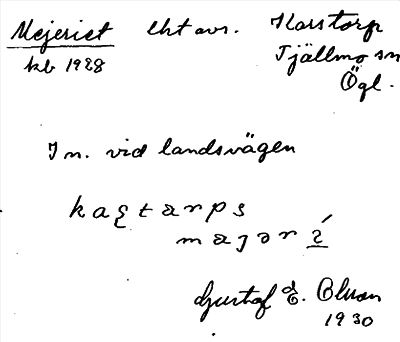 Mejeriet Eht avs. Korstorp
kb 1928 Tjällmo sn
Ögl.
I n. vid landsvägen
kaʂtarps
majərí
Gustaf E.
1930